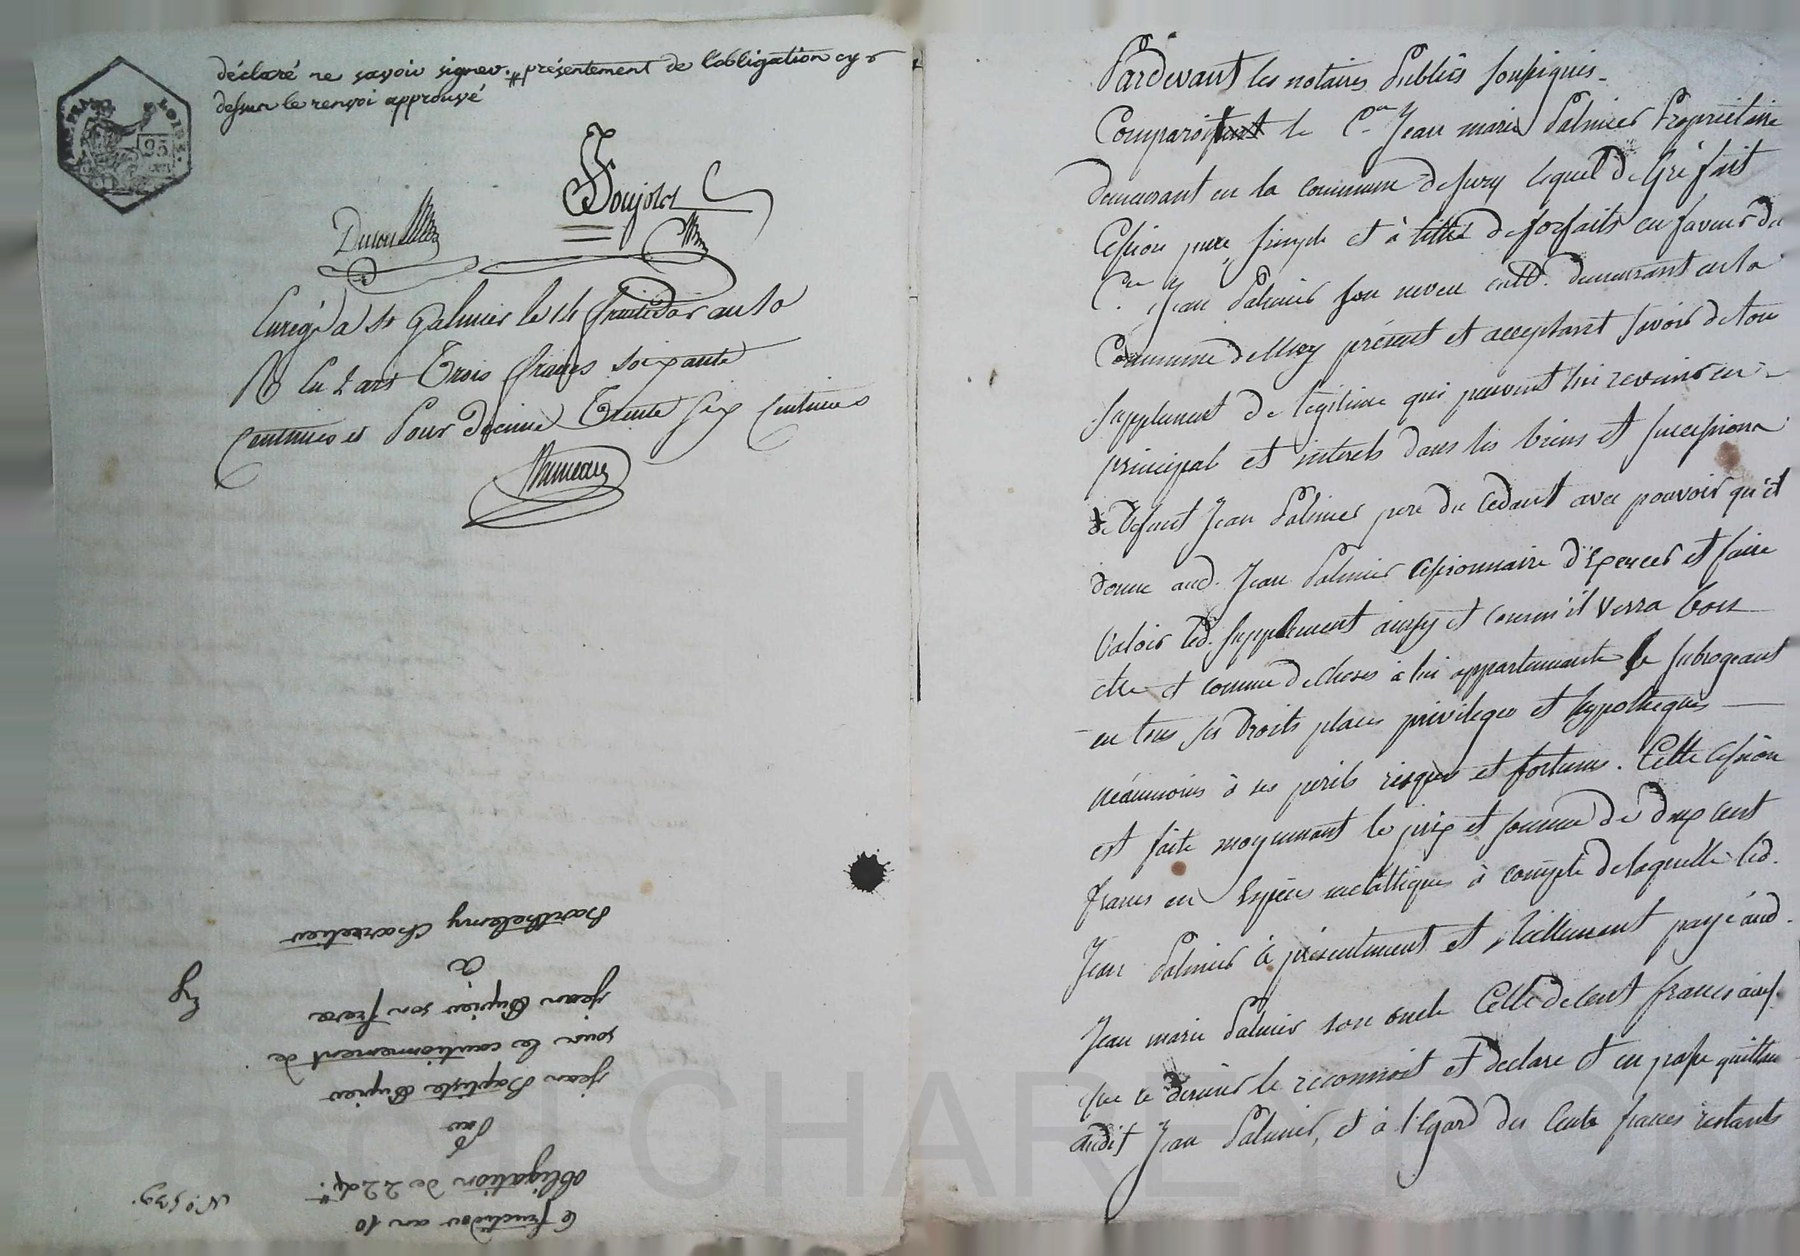 déclaré ne savoir signer. # présentement de l'obligation cy
dessus le renvoi approuvé
25
Enrége a St Galmier le 14 fructidor an 10
R Trois francs soixante
Centimes et pour décime Trente Six Centimes
Barthelemy Charretier
a
jean Cuprier son frere
sous le cautionnement de
jean Baptiste Cuprier
Par
obligation de 224#.
6 fructidor an 10
Pardevant les notaires Publics soussignés
Comparoit le Cen Jean marie Palmier Propriétaire
demeurant en la commune de Suzy lequel de Gré fait
Cession pure, simple et à titre de forfaits en faveur du
Cen Jean Palmier son neveu cult. demeurant en la
Commune de présent et acceptant savoir de tou
supplement de légitime qui peuvent lui revenir en
principal et interets dans les biens et successions
de défunt Jean Palmier pere du cedant avec pouvoir qu'il
donne aud. Jean Palmier cessionnaire d'Exercer et faire
Valoir led. supplement ainsy et comm'il verra bon
etre et comme de choses à lui appartenante le subrogeant
en tous ses droits places privileges et hypotheques
néanmoins à ses perils risques et fortunes. Cette cession
est faite moyennant le prix et somme de deux cent
francs en Espèces metalliques à compte de laquelle led.
Jean Palmier à présentement et réellement payé aud.
Jean marie Palmier son oncle Celle de cent francs ainsi
que ce dernier le reconnoit et declare et en passe quittance
audit Jean Palmier, et à l'Egard des Cents francs restants
Pascal CHAREYRON